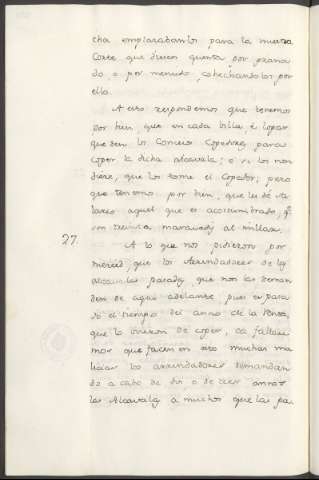 cha emplazabanlos para la nuestra
Corte que diesen quenta por grana
do o por menudo cohechandolos por
ello.
A esto respondemos que tenemos
por bien, que en cada villa, é logar
que den los Concejos Cogedores para
coger la dicha alcavala; é si los non
diere, que los tome el Cogedor; pero
que tenemos por bien, que les dé sa
lario aquel que es acostumbrado, q.e
son treinta maravedis al millar.
27. A lo que nos pidieron por
merced, que los Arrendadores de las
alcavalas pasadas, que non las deman
den de aqui adelante, pues es pasa
do el tiempo del anno de la Renta,
que la ovieron de coger, ca fallare
mos que facen en esto muchas ma
licias los arrendadores demandan
do a cabo de dos, o de tres annos
las Alcavalas á muchos que las pa